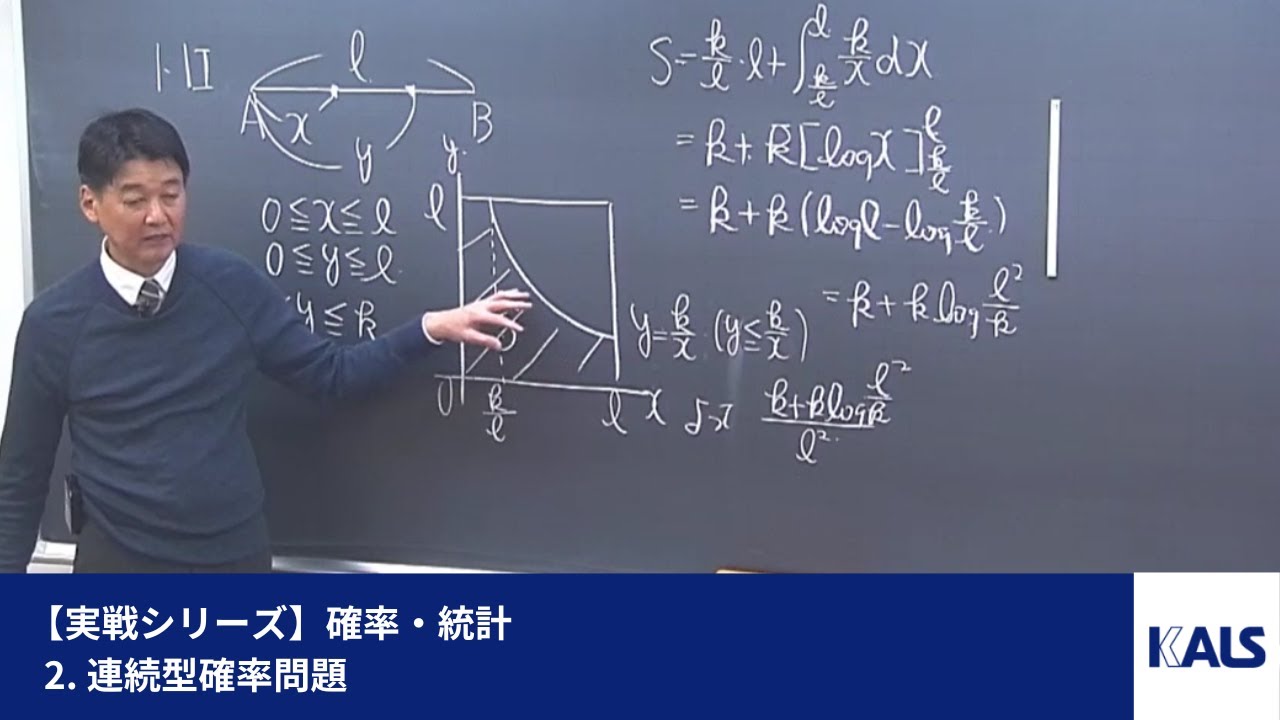 l
A x B
y
0≦x≦l
0≦y≦l
y≦k
y
l
0 k/l l x
S=k/l・l+∫_{k/l}^{l} k/x dx
=k+k[log x]_{k/l}^{l}
=k+k(log l-log k/l)
=k+k log l²/k
y=k/x (y≦k/x)
よって (k+k log l²/k)/l²
【実戦シリーズ】確率・統計
2. 連続型確率問題
KALS